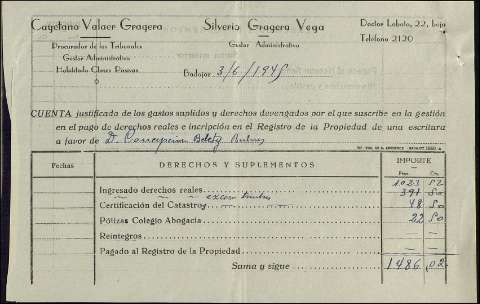 Cayetano Valaer Gragera
Silverio Gragera Vega
Doctor Lobato, 22, bajo
Teléfono 2120
Procurador de los Tribunales
Gestor Administrativo
Habilitado Clases Pasivas
Gestor Administrativo
Badajoz 3/6/1945
CUENTA justificada de los gastos suplidos y derechos devengados por el que suscribe en la gestión
en el pago de derechos reales e incripción en el Registro de la Propiedad de una escritura
a favor de D. Concepción
Fechas
DERECHOS Y SUPLEMENTOS
IMPORTE
Ptas. Cts.
Ingresado derechos reales 1023 82
" " exceso timbre 391 80
Certificación del Catastro 48 80
Pólizas Colegio Abogacía 22 80
Reintegros — —
Pagado al Registro de la Propiedad — —
Suma y sigue 1486 02